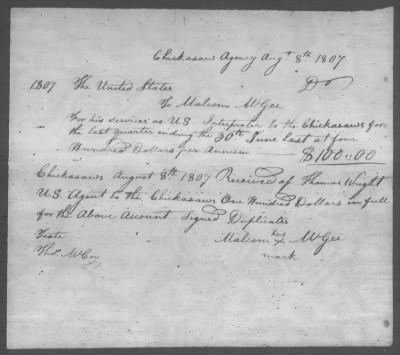 Chickasaw Agency Augt 8th 1807
1807 The United States Dr
To Malcom McGee
For his services as U.S. Interpreter to the Chickasaws for
the last quarter ending the 30th June last at four
Hundred Dollars per Annum $100..00
Chickasaws August 8th 1807 Received of Thomas Wright
U.S. Agent to the Chickasaws One Hundred Dollars in full
for the Above Account Signed Duplicates
Malcom his x McGee
mark
Teste
Thos. McCoy